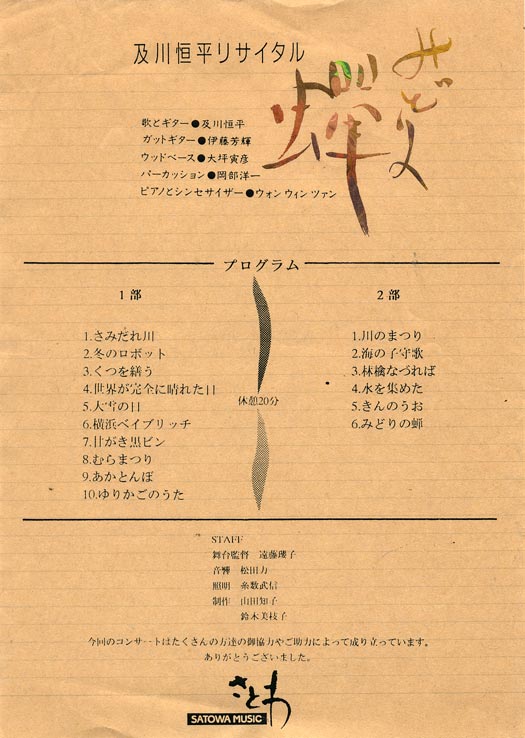 及川恒平リサイタル
みどりの
蟬
歌とギター●及川恒平
ガットギター●伊藤芳輝
ウッドベース●大坪寅彦
パーカッション●岡部洋一
ピアノとシンセサイザー●ウォン ウィン ツァン
プログラム
1部
1.さみだれ川
2.冬のロボット
3.くつを繕う
4.世界が完全に晴れた日
5.大雪の日
6.横浜ベイブリッヂ
7.甘がき黒ビン
8.むらまつり
9.あかとんぼ
10.ゆりかごのうた
休憩20分
2部
1.川のまつり
2.海の子守歌
3.林檎なづれば
4.水を集めた
5.きんのうお
6.みどりの蟬
STAFF
舞台監督 遠藤瓔子
音響 松田力
照明 糸数武信
制作 山田知子
鈴木美枝子
今回のコンサートはたくさんの方達の御協力やご助力によって成り立っています。
ありがとうございました。
さとわ
SATOWA MUSIC